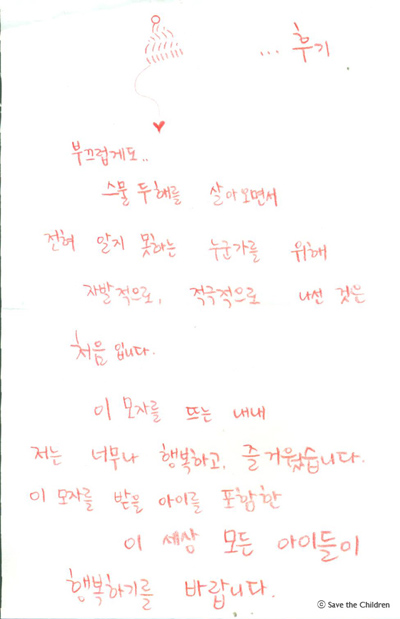 ... 후기
부끄럽게도..
스물 두해를 살아오면서
전혀 알지 못하는 누군가를 위해
자발적으로, 적극적으로 나선 것은
처음 입니다.
이 모자를 뜨는 내내
저는 너무나 행복하고, 즐거웠습니다.
이 모자를 받을 아이를 포함한
이 세상 모든 아이들이
행복하기를 바랍니다.
ⓒ Save the Children